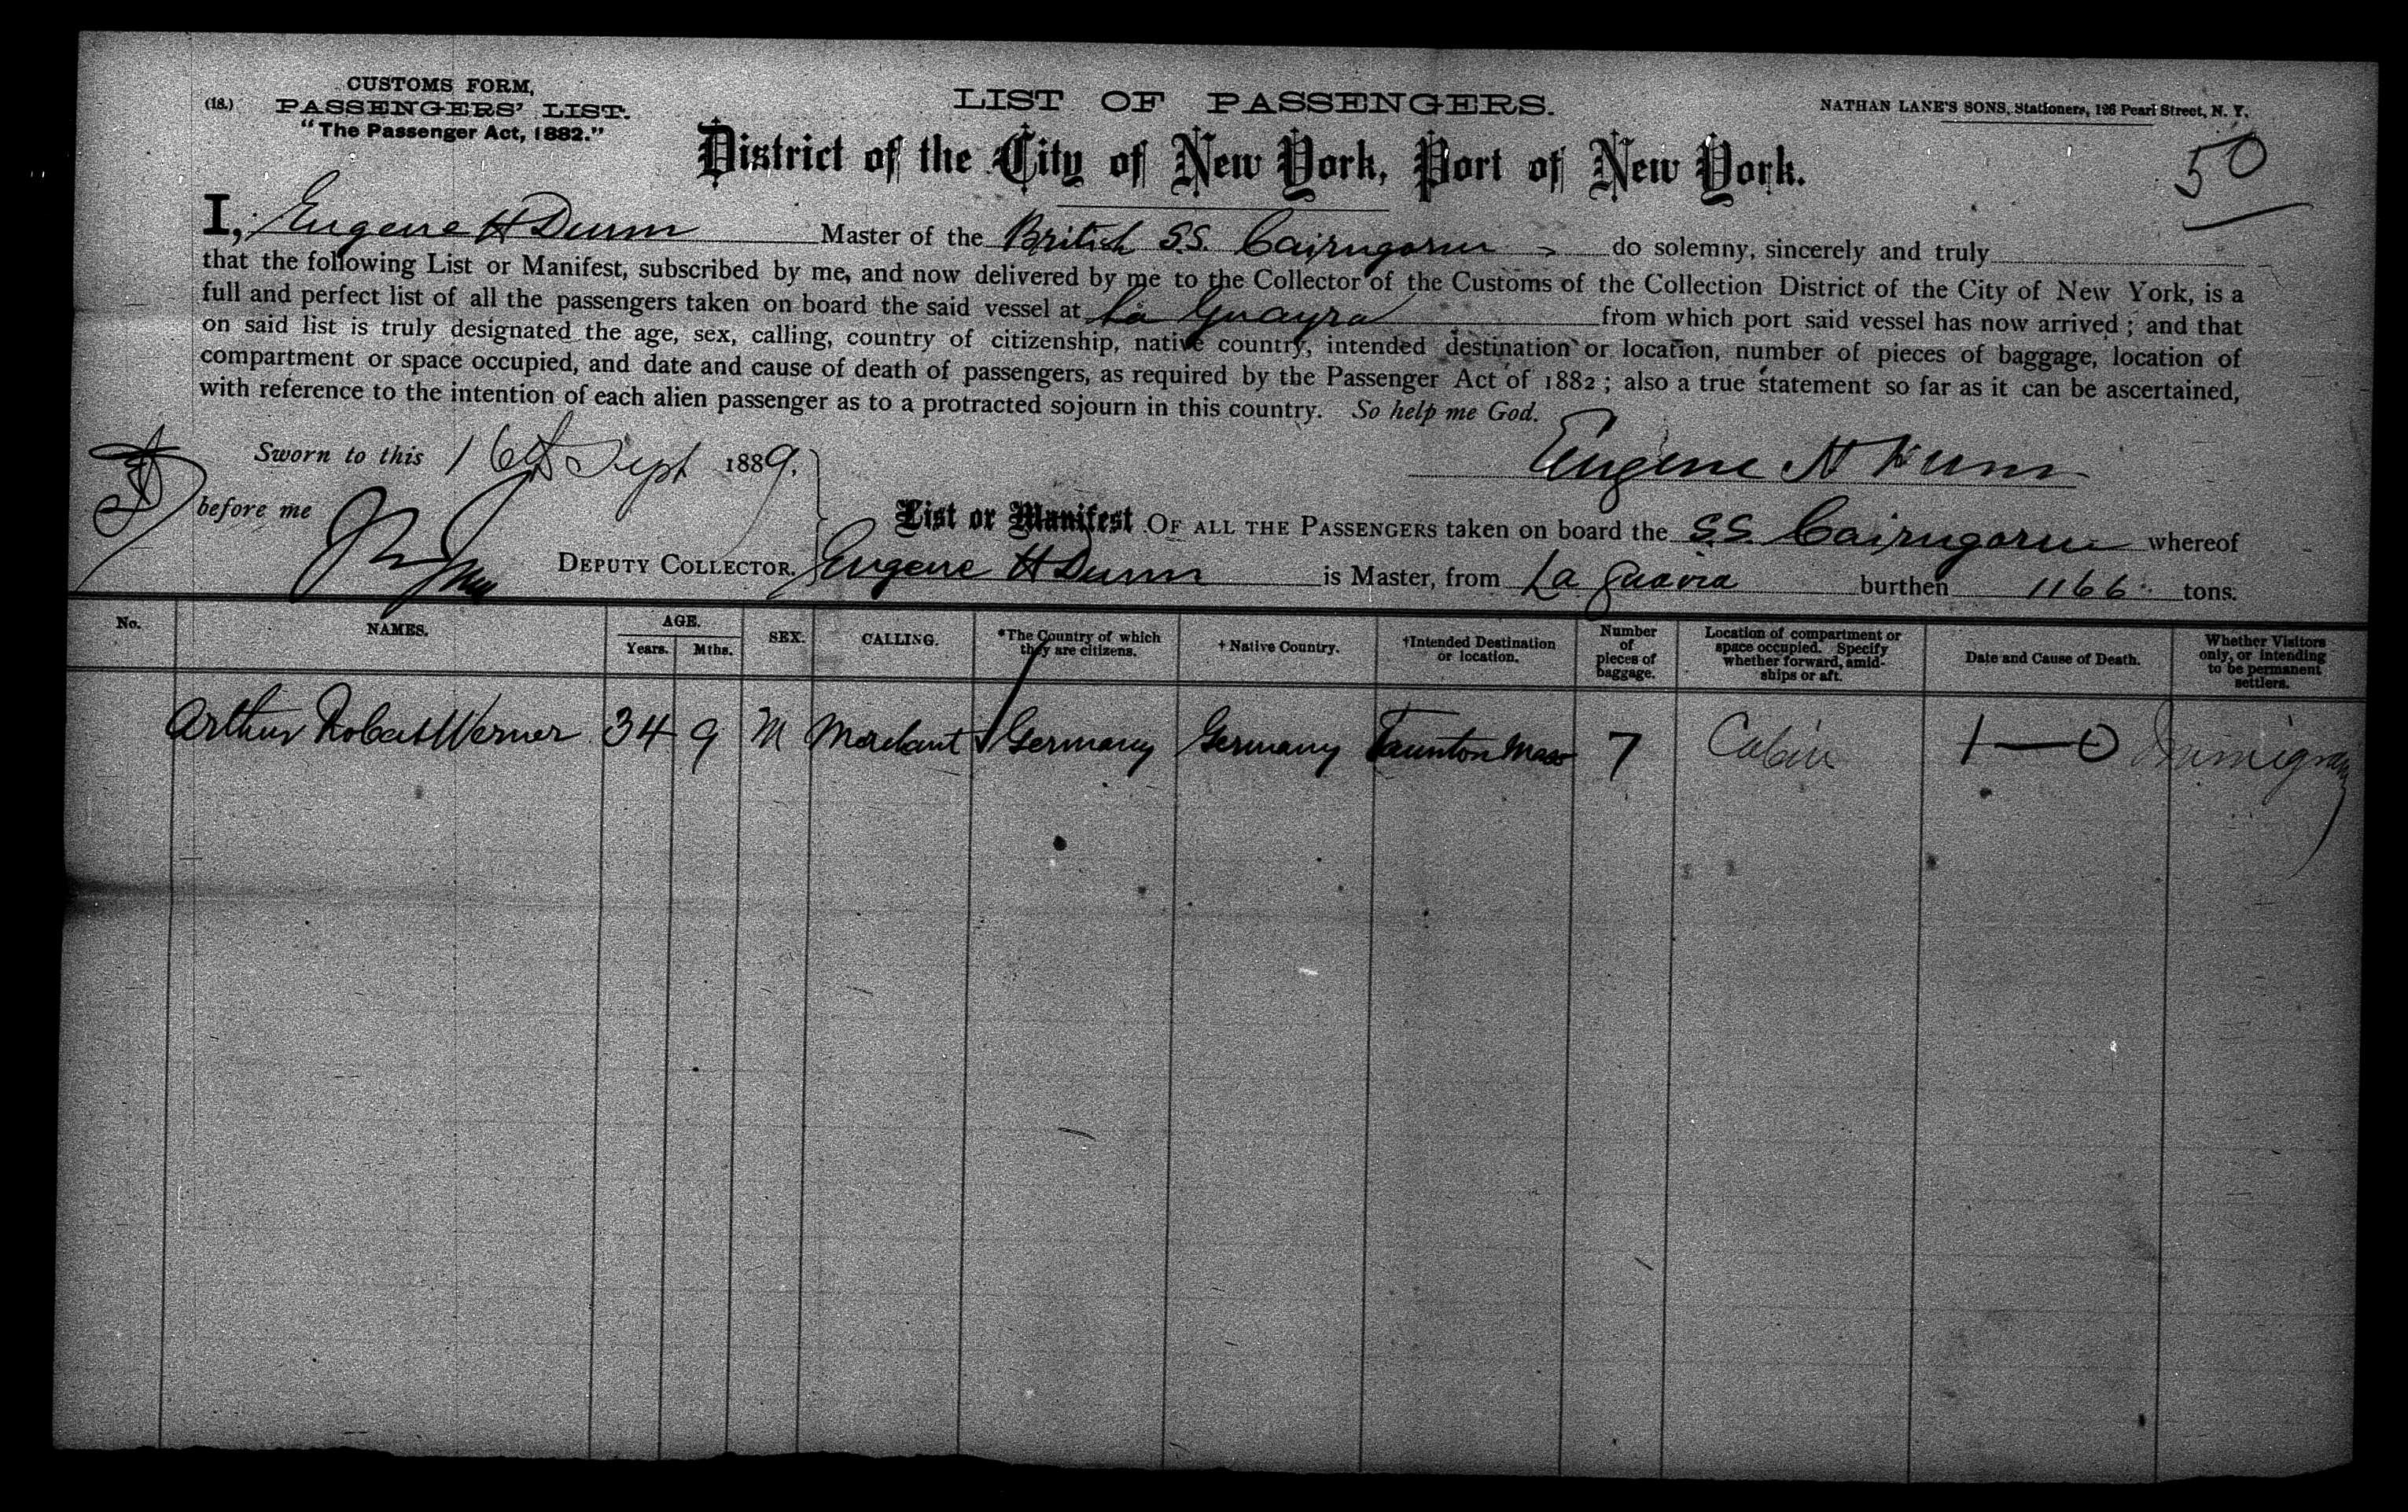 CUSTOMS FORM,
(18.) PASSENGERS' LIST.
"The Passenger Act, 1882."
LIST OF PASSENGERS.
NATHAN LANE'S SONS, Stationers, 126 Pearl Street, N. Y.
District of the City of New York, Port of New York.
50
I, Eugene H Dunn Master of the British S.S. Cairngorm do solemny, sincerely and truly
that the following List or Manifest, subscribed by me, and now delivered by me to the Collector of the Customs of the Collection District of the City of New York, is a
full and perfect list of all the passengers taken on board the said vessel at La Guayra from which port said vessel has now arrived; and that
on said list is truly designated the age, sex, calling, country of citizenship, native country, intended destination or location, number of pieces of baggage, location of
compartment or space occupied, and date and cause of death of passengers, as required by the Passenger Act of 1882; also a true statement so far as it can be ascertained,
with reference to the intention of each alien passenger as to a protracted sojourn in this country. So help me God.
Sworn to this 16th Sept 1889.
Eugene H Dunn
before me
DEPUTY COLLECTOR.
List or Manifest OF ALL THE PASSENGERS taken on board the S.S. Cairngorm whereof
Eugene H Dunn is Master, from La Guaira burthen 1166 tons.
No. NAMES. AGE. Years. Mths. SEX. CALLING. *The Country of which they are citizens. †Native Country. †Intended Destination or location. Number of pieces of baggage. Location of compartment or space occupied. Specify whether forward, amidships or aft. Date and Cause of Death. Whether Visitors only, or intending to be permanent settlers.
Arthur Robert Werner 34 9 M Merchant Germany Germany Taunton Mass 7 Cabin 1—0